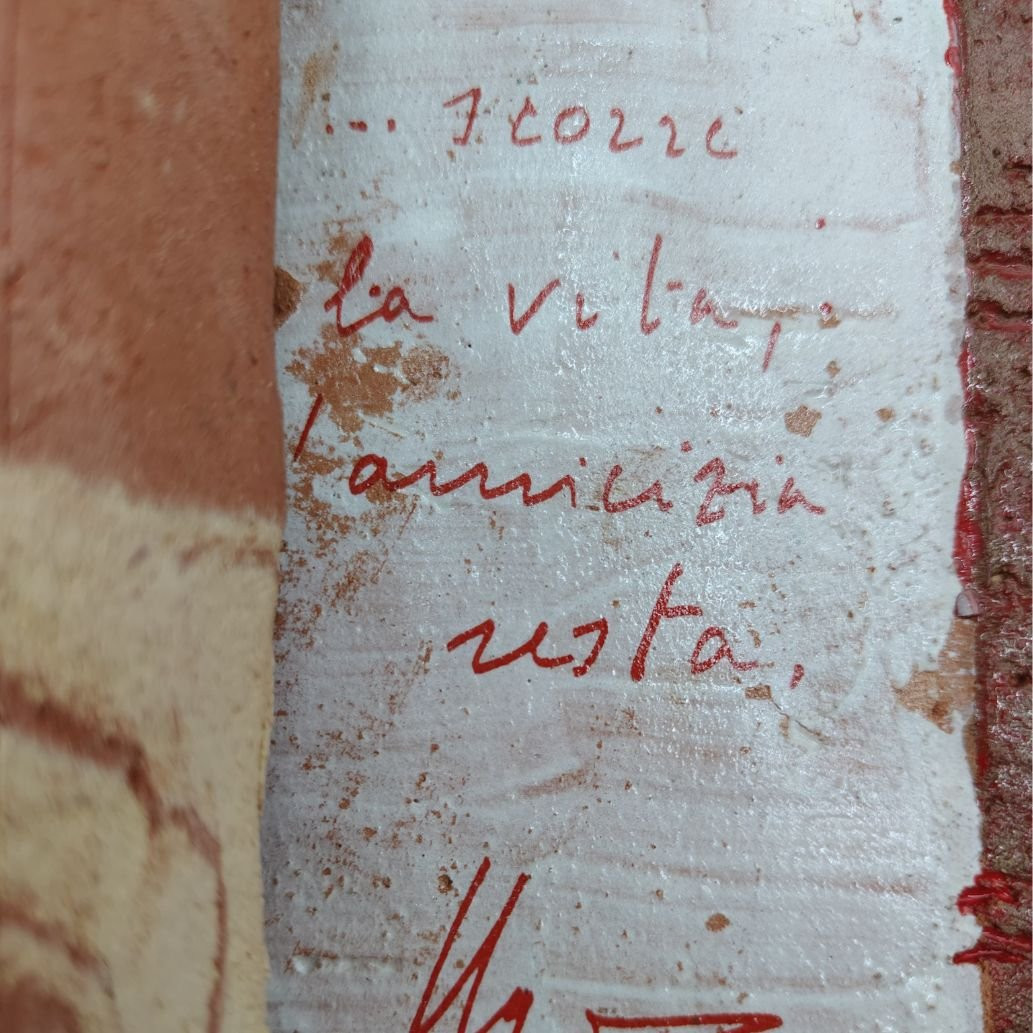 ... scorre
la vita,
l'amicizia
resta,